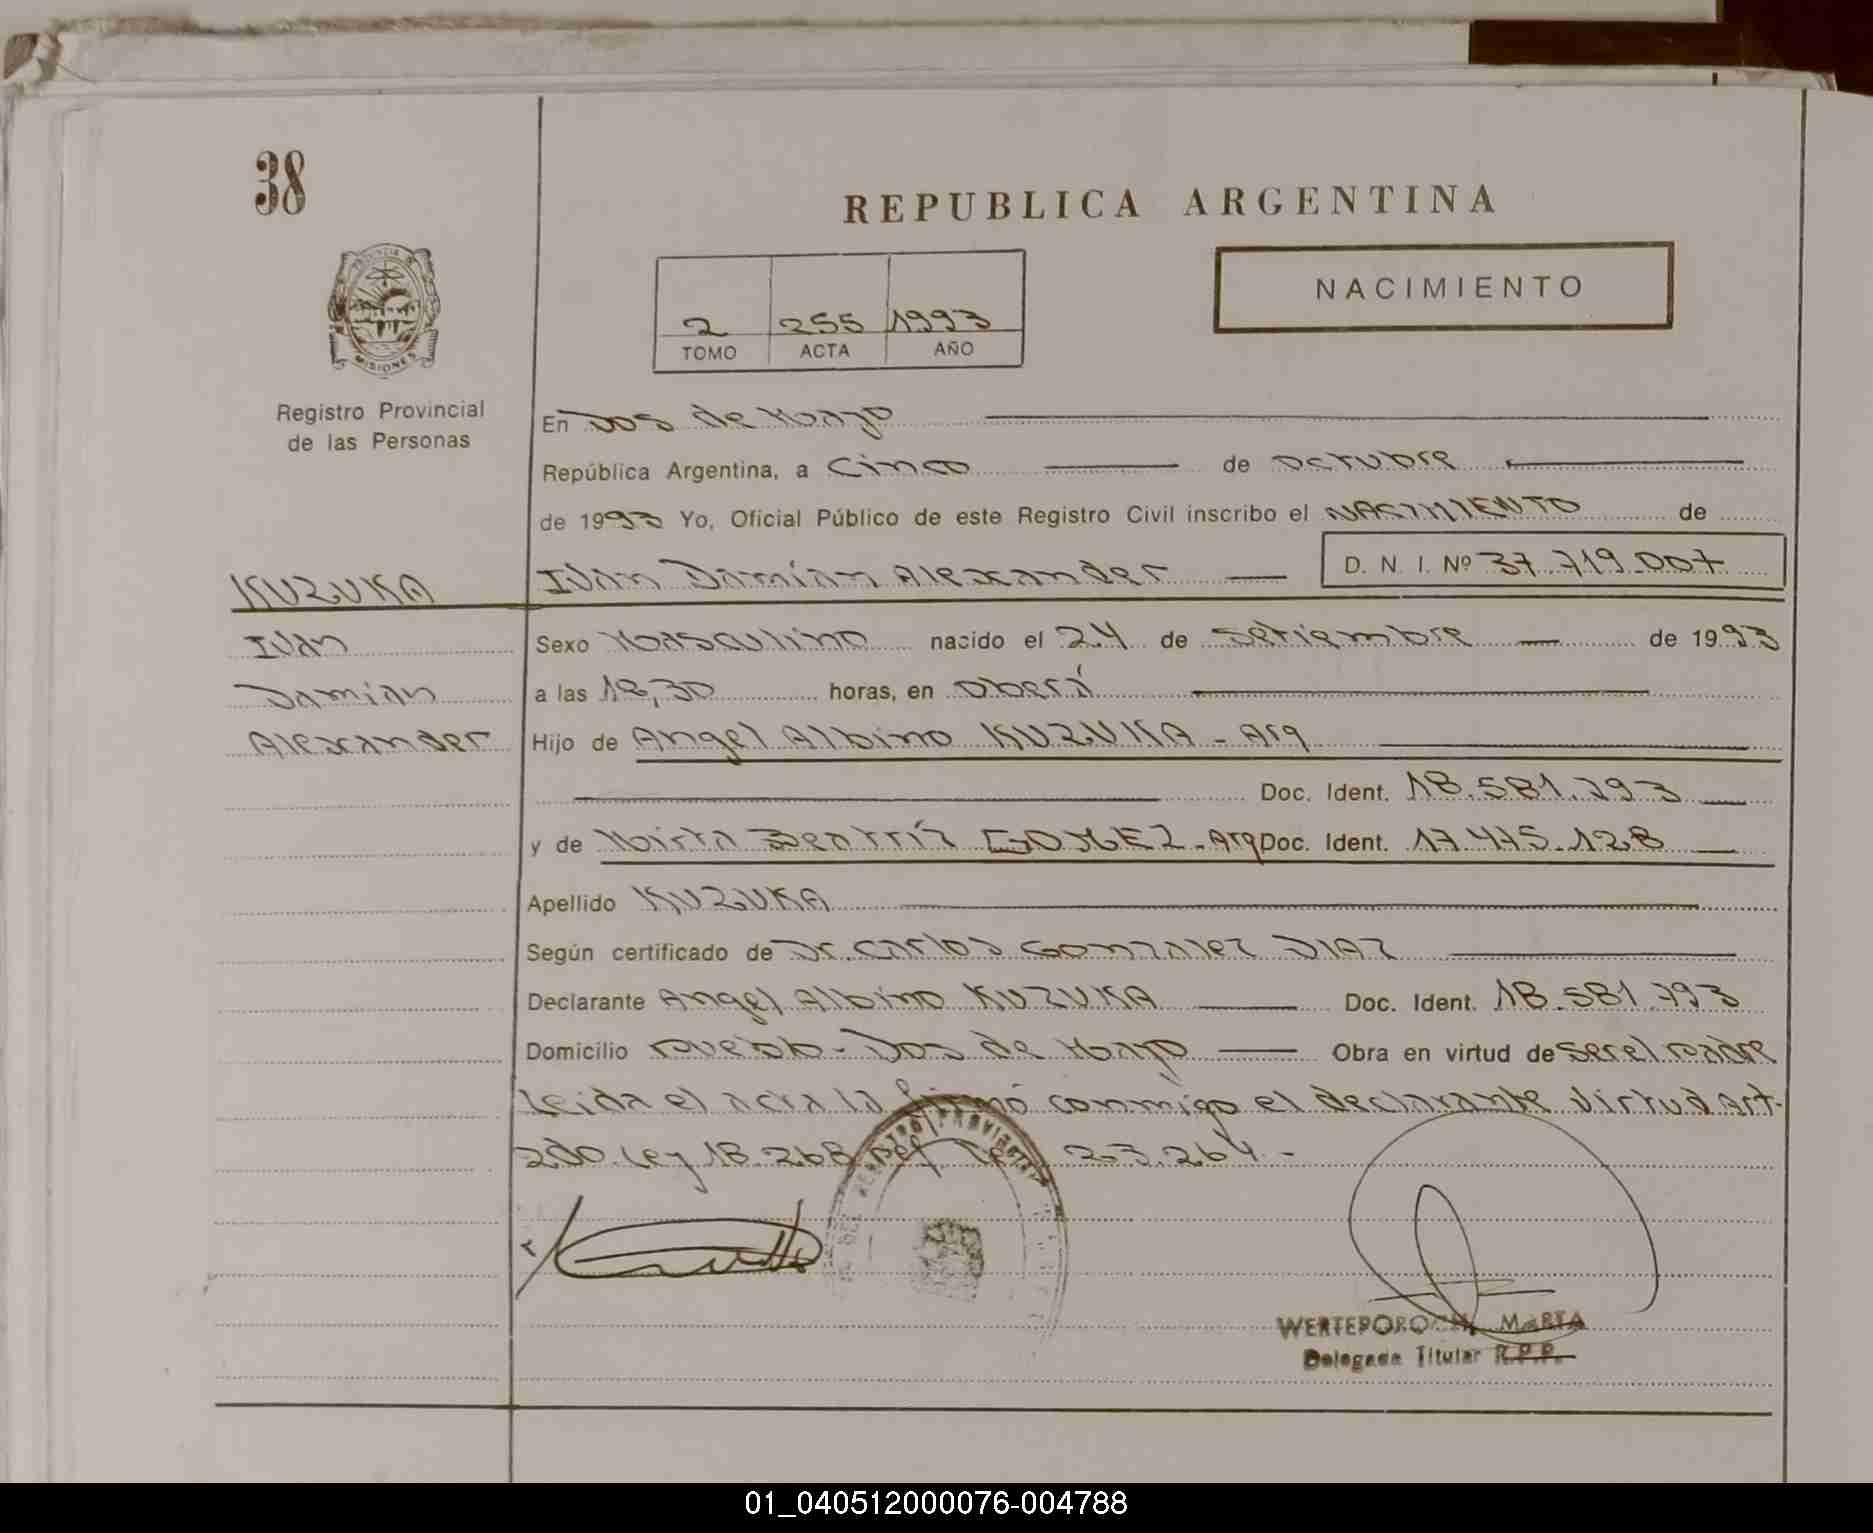 38
REPUBLICA ARGENTINA
NACIMIENTO
2 255 1993
TOMO ACTA AÑO
PROVINCIA DE
MISIONES
Registro Provincial
de las Personas
En Dos de Mayo
República Argentina, a Cinco de octubre
de 1993 Yo, Oficial Público de este Registro Civil inscribo el NACIMIENTO de
Ivan Damian Alexander D. N. I. Nº 37.719.007
KUZUKA
Ivan
Damian
Alexander
Sexo Masculino nacido el 24 de setiembre de 1993
a las 18,30 horas, en Oberá
Hijo de Angel Albino KUZUKA - Arg
Doc. Ident. 18.581.793
y de Mirta Beatríz GOMEZ - Arg Doc. Ident. 17.475.128
Apellido KUZUKA
Según certificado de Dr. Carlos Gonzalez DIAZ
Declarante Angel Albino KUZUKA Doc. Ident. 18.581.793
Domicilio Pueblo - Dos de Mayo Obra en virtud de ser el padre
Leida el acta la firmó conmigo el declarante virtud Art.
2do. Ley 18.268 Ley 23.264.-
DEL REGISTRO PROVINCIAL
WERTEPOROCH, MARTA
Delegada Titular R.P.P.
01_040512000076-004788